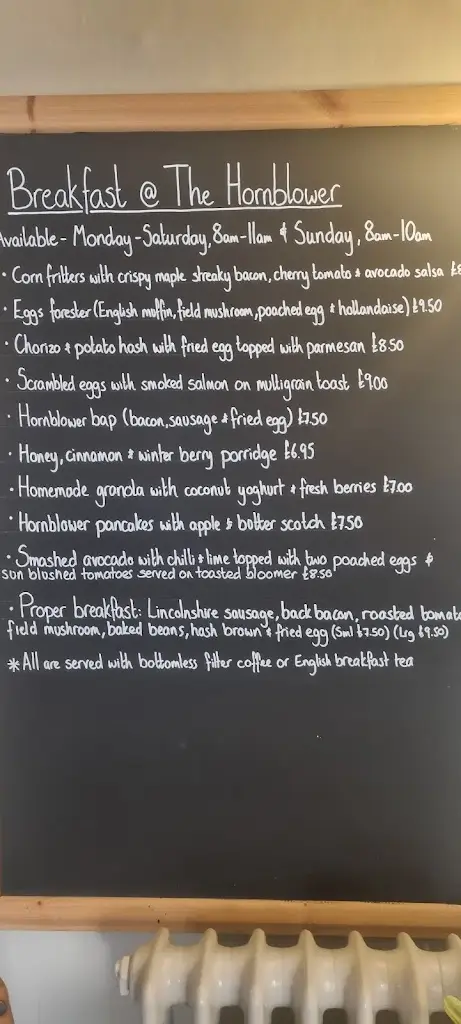 Breakfast @ The Hornblower
Available - Monday - Saturday, 8am - 11am & Sunday, 8am - 10am
• Corn fritters with crispy maple streaky bacon, cherry tomato & avocado salsa
• Eggs forester (English muffin, field mushroom, poached egg & hollandaise) £9.50
• Chorizo & potato hash with fried egg topped with parmesan £8.50
• Scrambled eggs with smoked salmon on multigrain toast £9.00
• Hornblower bap (bacon, sausage & fried egg) £7.50
• Honey, cinnamon & winter berry porridge £6.95
• Homemade granola with coconut yoghurt & fresh berries £7.00
• Hornblower pancakes with apple & butter scotch £7.50
• Smashed avocado with chilli & lime topped with two poached eggs &
sun blushed tomatoes served on toasted bloomer £8.50
• Proper breakfast: Lincolnshire sausage, back bacon, roasted tomato
field mushroom, baked beans, hash brown & fried egg (Sml £7.50) (Lrg £9.50)
* All are served with bottomless filter coffee or English breakfast tea